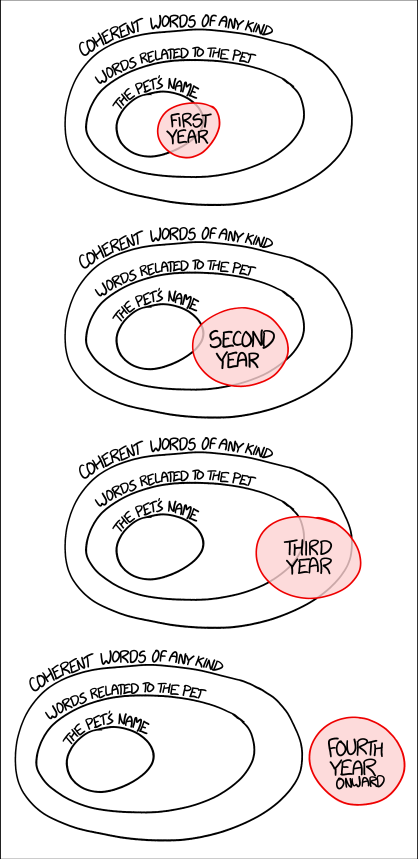 COHERENT WORDS OF ANY KIND
WORDS RELATED TO THE PET
THE PET'S NAME
FIRST
YEAR
COHERENT WORDS OF ANY KIND
WORDS RELATED TO THE PET
THE PET'S NAME
SECOND
YEAR
COHERENT WORDS OF ANY KIND
WORDS RELATED TO THE PET
THE PET'S NAME
THIRD
YEAR
COHERENT WORDS OF ANY KIND
WORDS RELATED TO THE PET
THE PET'S NAME
FOURTH
YEAR
ONWARD